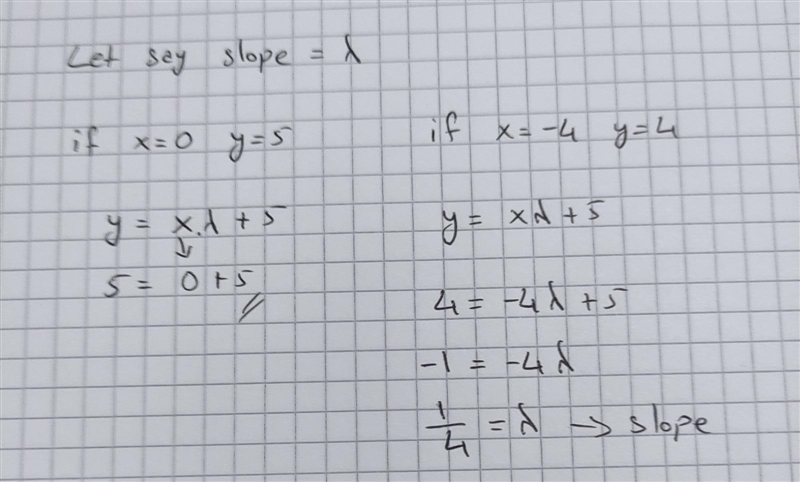 Let say slope = λ
if x=0 y=5
y = x.λ + 5
5 = 0+5
if x=-4 y=4
y = xλ+5
4 = -4λ +5
-1 = -4λ
1/4 = λ → slope